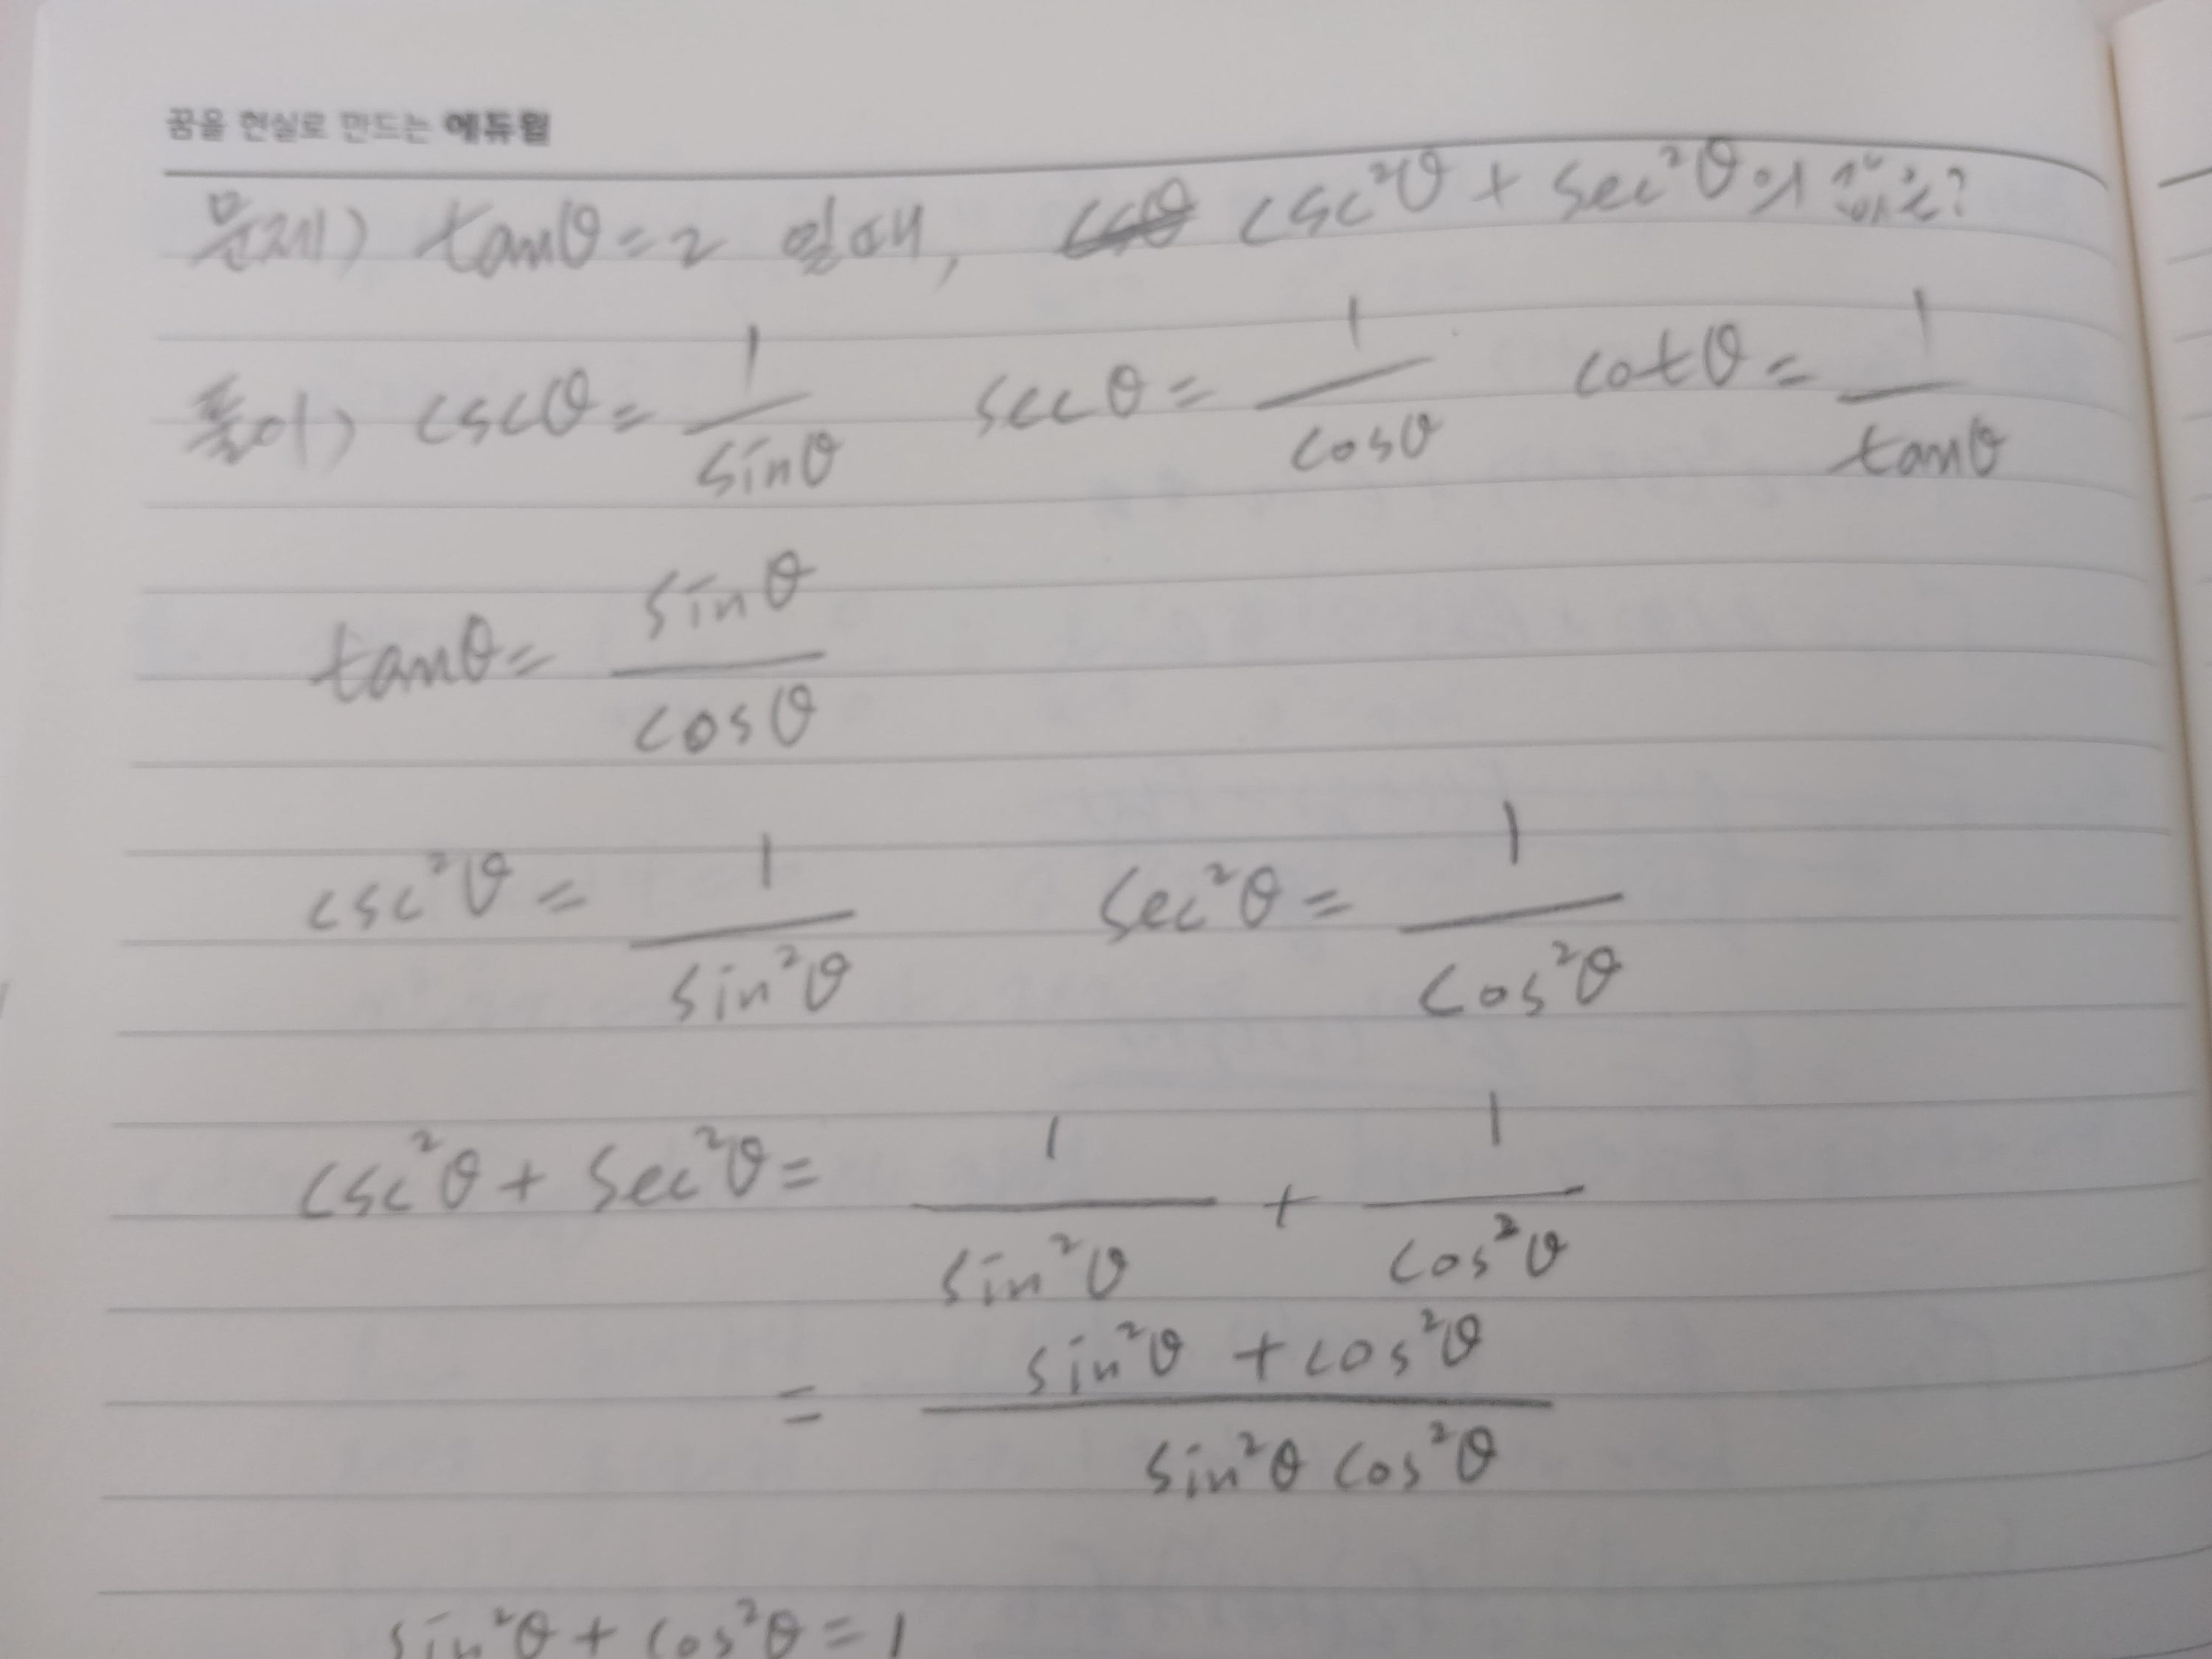 꿈을 현실로 만드는 에듀윌
문제) tanθ=2 일 때, csc²θ + sec²θ의 값은?
풀이) cscθ = 1/sinθ secθ = 1/cosθ cotθ = 1/tanθ
tanθ = sinθ/cosθ
csc²θ = 1/sin²θ sec²θ = 1/cos²θ
csc²θ + sec²θ = 1/sin²θ + 1/cos²θ
= sin²θ + cos²θ/sin²θ cos²θ
sin²θ + cos²θ = 1